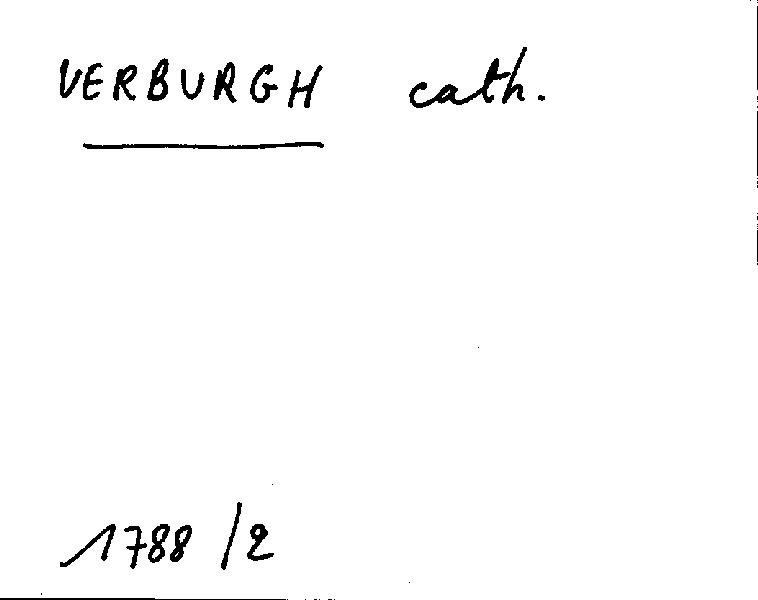 VERBURGH cath.
1788 / 2